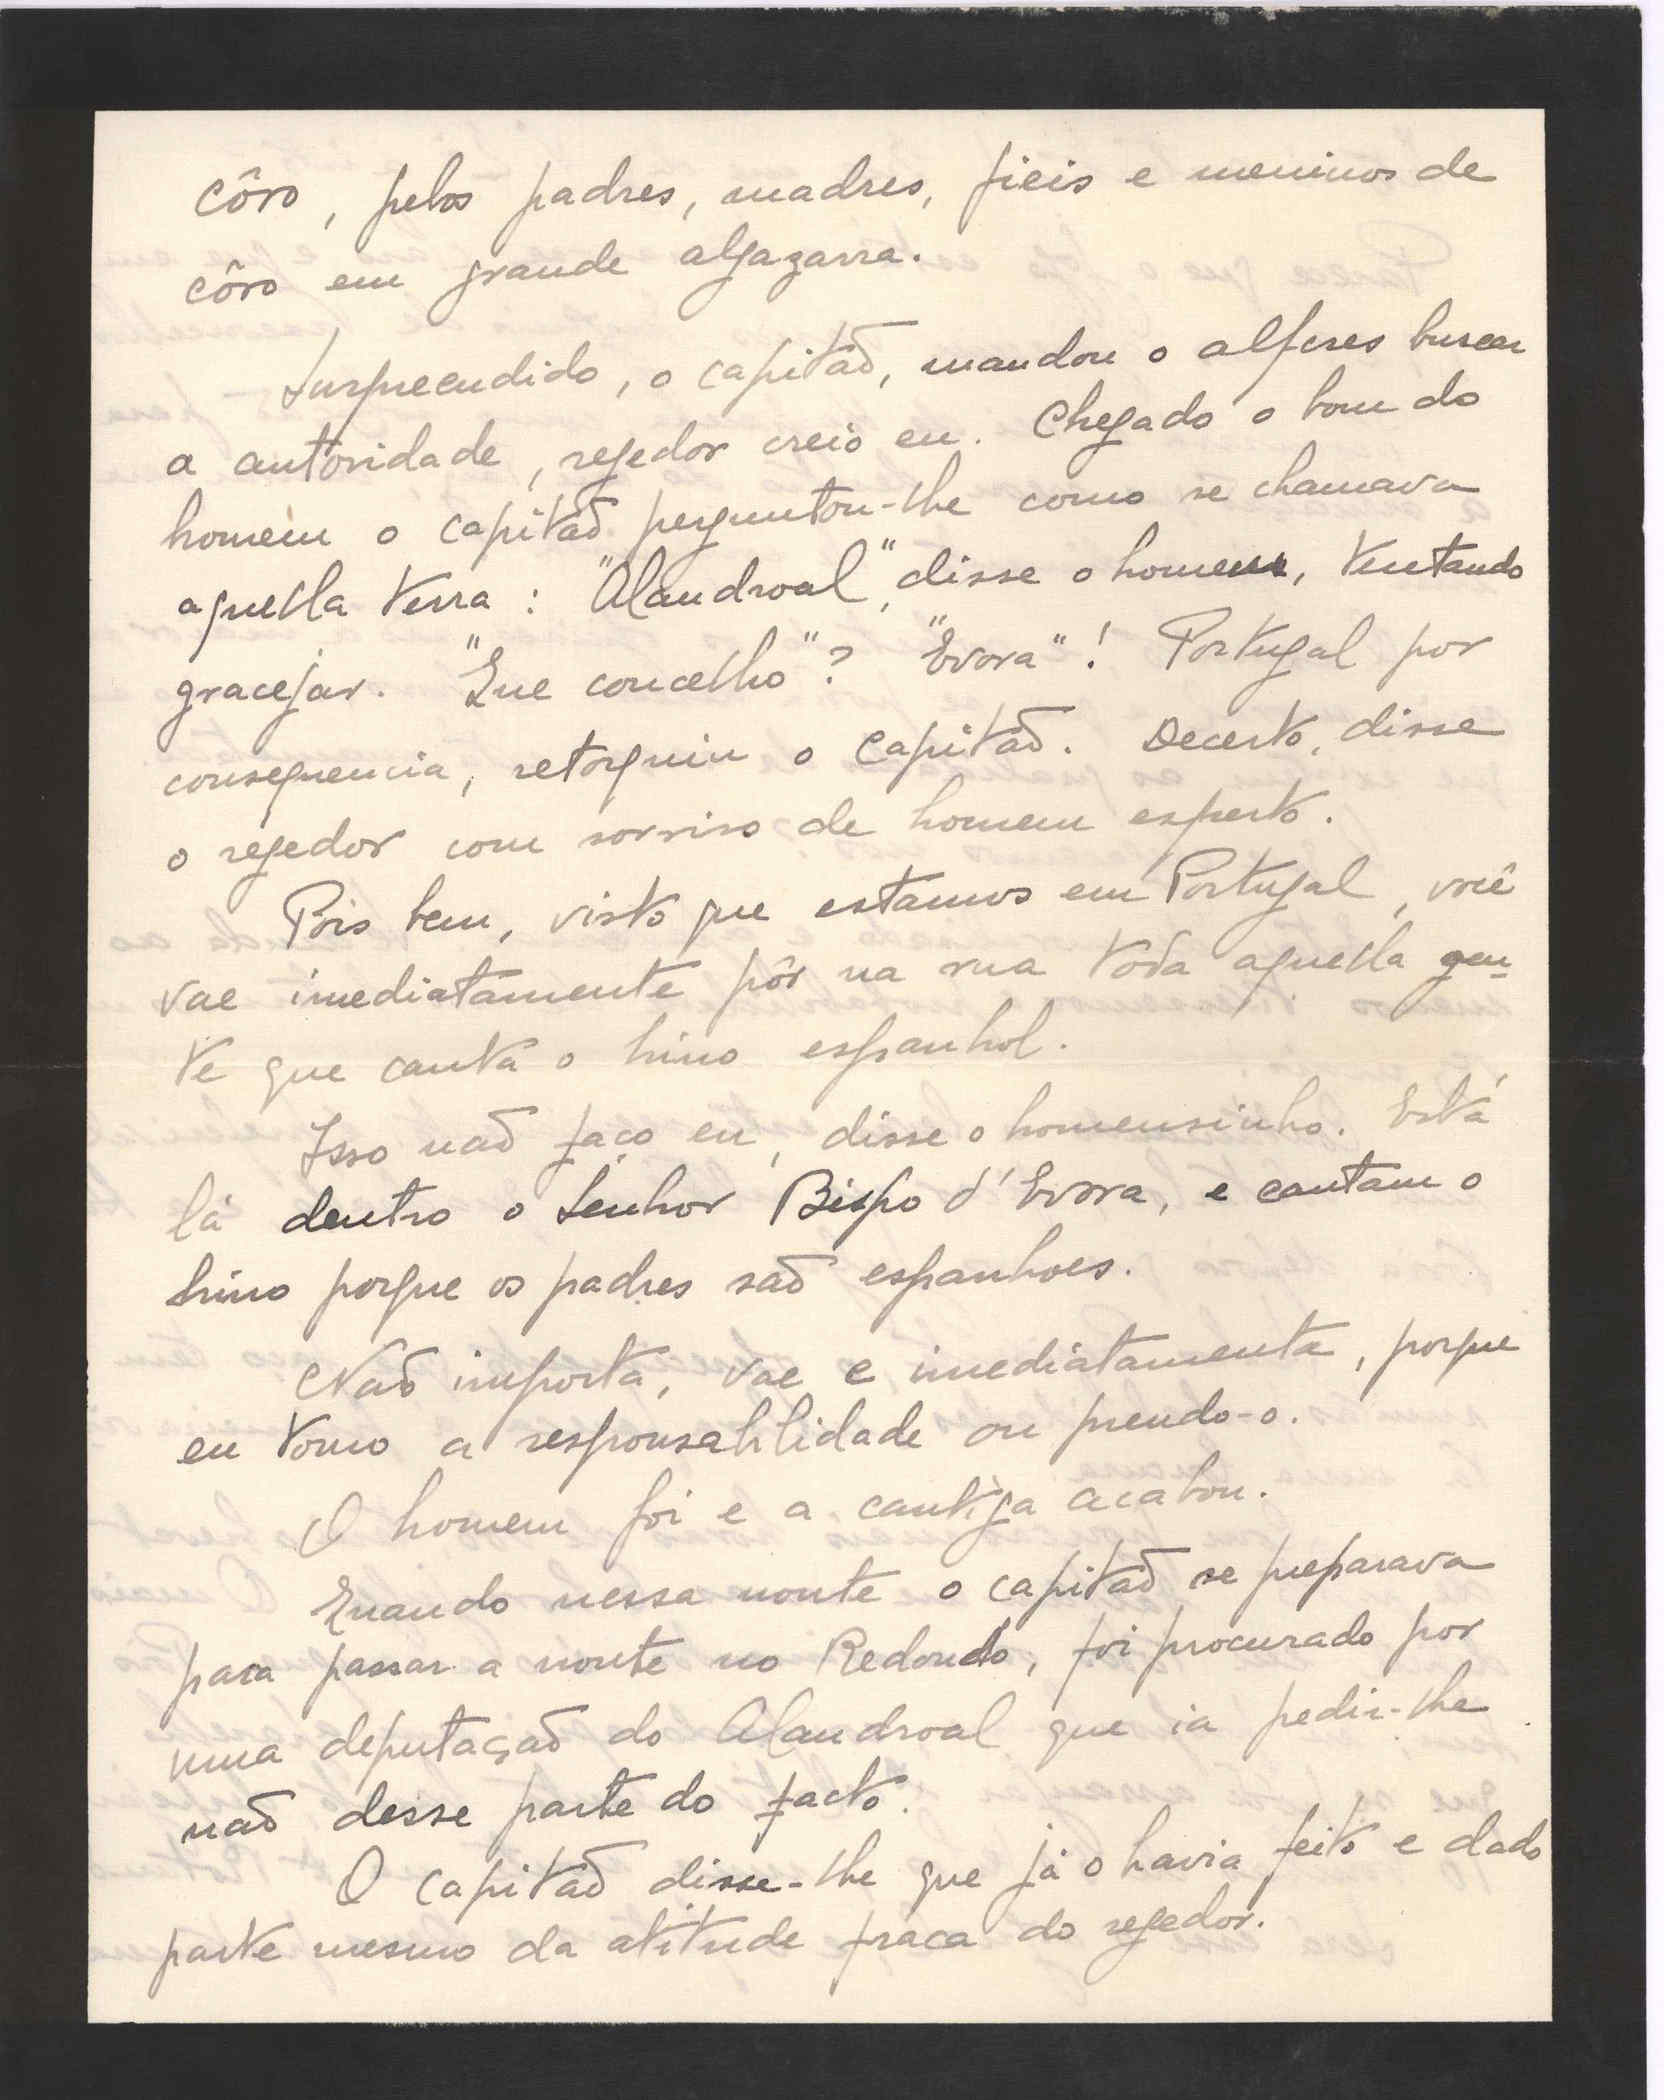 côro, pelos padres, madres, fieis e meninos de
côro em grande algazarra.
Surpreendido, o capitão, mandou o alferes buscar
a autoridade, regedor creio eu. Chegado o bom do
homem o capitão perguntou-lhe como se chamava
aquella terra: "Alandroal", disse o homem, tentando
gracejar. "Que concelho"? "Evora"! Portugal por
consequencia, retorquiu o capitão. Decerto, disse
o regedor com sorriso de homem esperto.
Pois bem, visto que estamos em Portugal, você
vae imediatamente pôr na rua toda aquella gen-
te que canta o hino espanhol.
Isso não faço eu, disse o homensinho. Está
lá dentro o Senhor Bispo d'Evora, e cantam o
hino porque os padres são espanhoes.
Não importa, vae e imediatamente, porque
eu tomo a responsabilidade ou prendo-o.
O homem foi e a cantiga acabou.
Quando nessa noute o capitão se preparava
para passar a noute no Redondo, foi procurado por
uma deputação do Alandroal que ia pedir-lhe
não desse parte do facto.
O capitão disse-lhe que já o havia feito e dado
parte mesmo da atitude fraca do regedor.